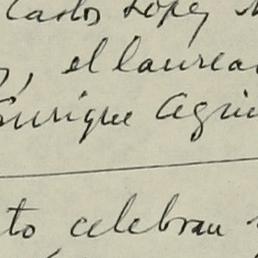 Carlos López
el laurea
Enrique Agui
to celebran